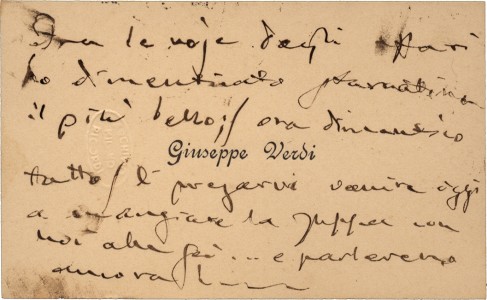 Fra le noje degli Affari
ho dimenticato stamattina
il più bello; / ora dimentico
Giuseppe Verdi
tutto / e pregarvi venire oggi
a mangiare la zuppa con
noi alle ... e parleremo
ancora